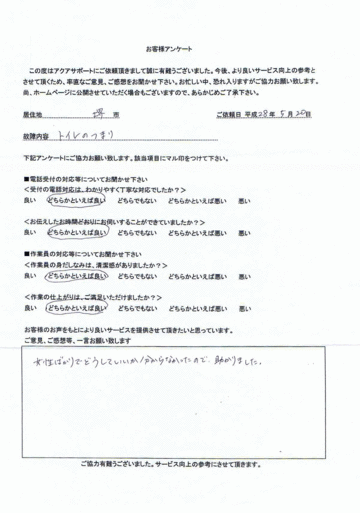 お客様アンケート
この度はアクアサポートにご依頼頂きまして誠に有難うございました。今後、より良いサービス向上の参考と
させて頂くため、率直なご意見、ご感想をお聞かせ下さい。お忙しい中、恐れ入りますがご協力お願い致します。
尚、ホームページに公開させていただく場合もございますので、あらかじめご了承下さい。
居住地 堺 市 ご依頼日 平成28年 5月 20日
故障内容 トイレのつまり
下記アンケートにご協力お願い致します。該当項目にマル印をつけて下さい。
■電話受付の対応等についてお聞かせ下さい
<受付の電話対応は、わかりやすく丁寧な対応でしたか?>
良い どちらかといえば良い どちらでもない どちらかといえば悪い 悪い
<お伝えしたお時間どおりにお伺いすることができていましたか?>
良い どちらかといえば良い どちらでもない どちらかといえば悪い 悪い
■作業員の対応等についてお聞かせ下さい
<作業員の身だしなみは、清潔感がありましたか?>
良い どちらかといえば良い どちらでもない どちらかといえば悪い 悪い
<作業の仕上がりは、ご満足いただけましたか?>
良い どちらかといえば良い どちらでもない どちらかといえば悪い 悪い
お客様のお声をもとにより良いサービスを提供させて頂きたいと思っています。
ご意見、ご感想等、一言お願い致します
女性ばかりでどうしていいか分からなかったので、助かりました。
ご協力有難うございました。サービス向上の参考にさせて頂きます。